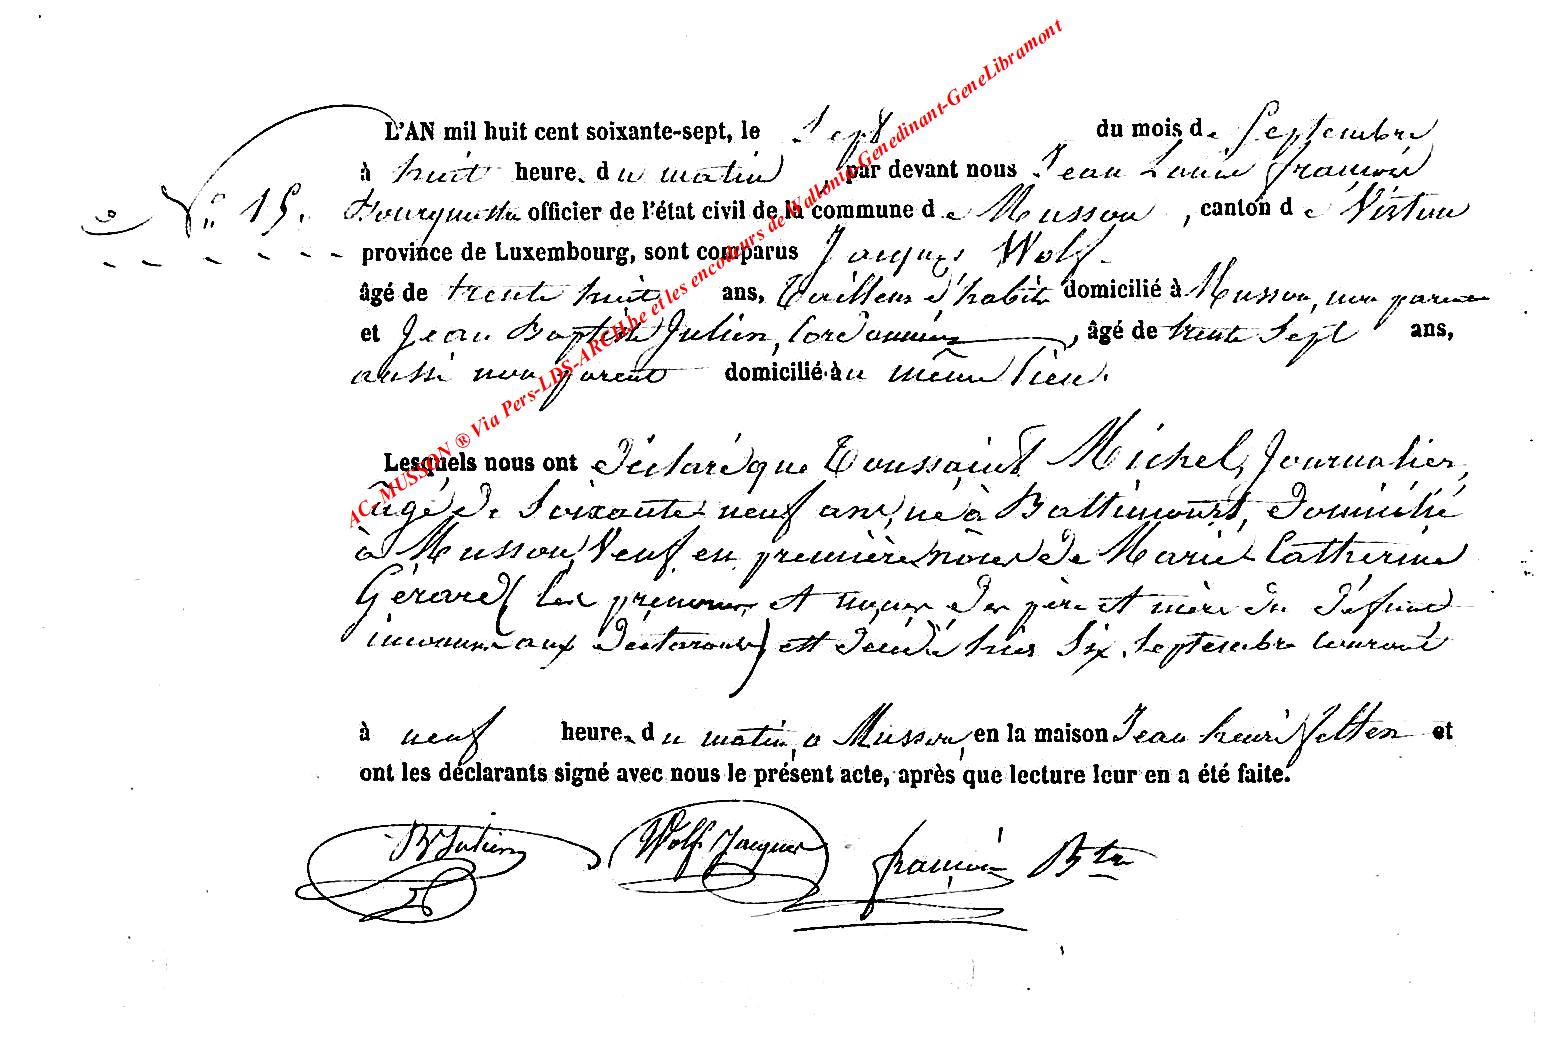 L'AN mil huit cent soixante-sept, le Sept du mois de Septembre
à huit heures du matin, par devant nous Jean Louis François
Nº 15. officier de l'état civil de la commune de Musson, canton de Virton
province de Luxembourg, sont comparus Jacques Wolf
âgé de trente huit ans, Tailleur d'habits domicilié à Musson, non parent
et Jean Baptiste Julien, Cordonnier, âgé de trente Sept ans,
aussi non parent domicilié au même lieu.
Lesquels nous ont déclaré que Toussaint Michel, Journalier,
âgé de Soixante neuf ans, né à Battincourt, domicilié
à Musson, Veuf en première nôces de Marie Catherine
Gérard (les prénoms et noms des père et mère du défunt
inconnus aux déclarants) est décédé hier Six Septembre courant
à neuf heures du matin, à Musson, en la maison Jean henri felten et
ont les déclarants signé avec nous le présent acte, après que lecture leur en a été faite.
Bte Julien Wolf Jacques françois Btre
AC. MUSSON ® Via Pers-LDS-ARCH.be et les encodeurs de Wallonia-Genedinant-GeneLibramont